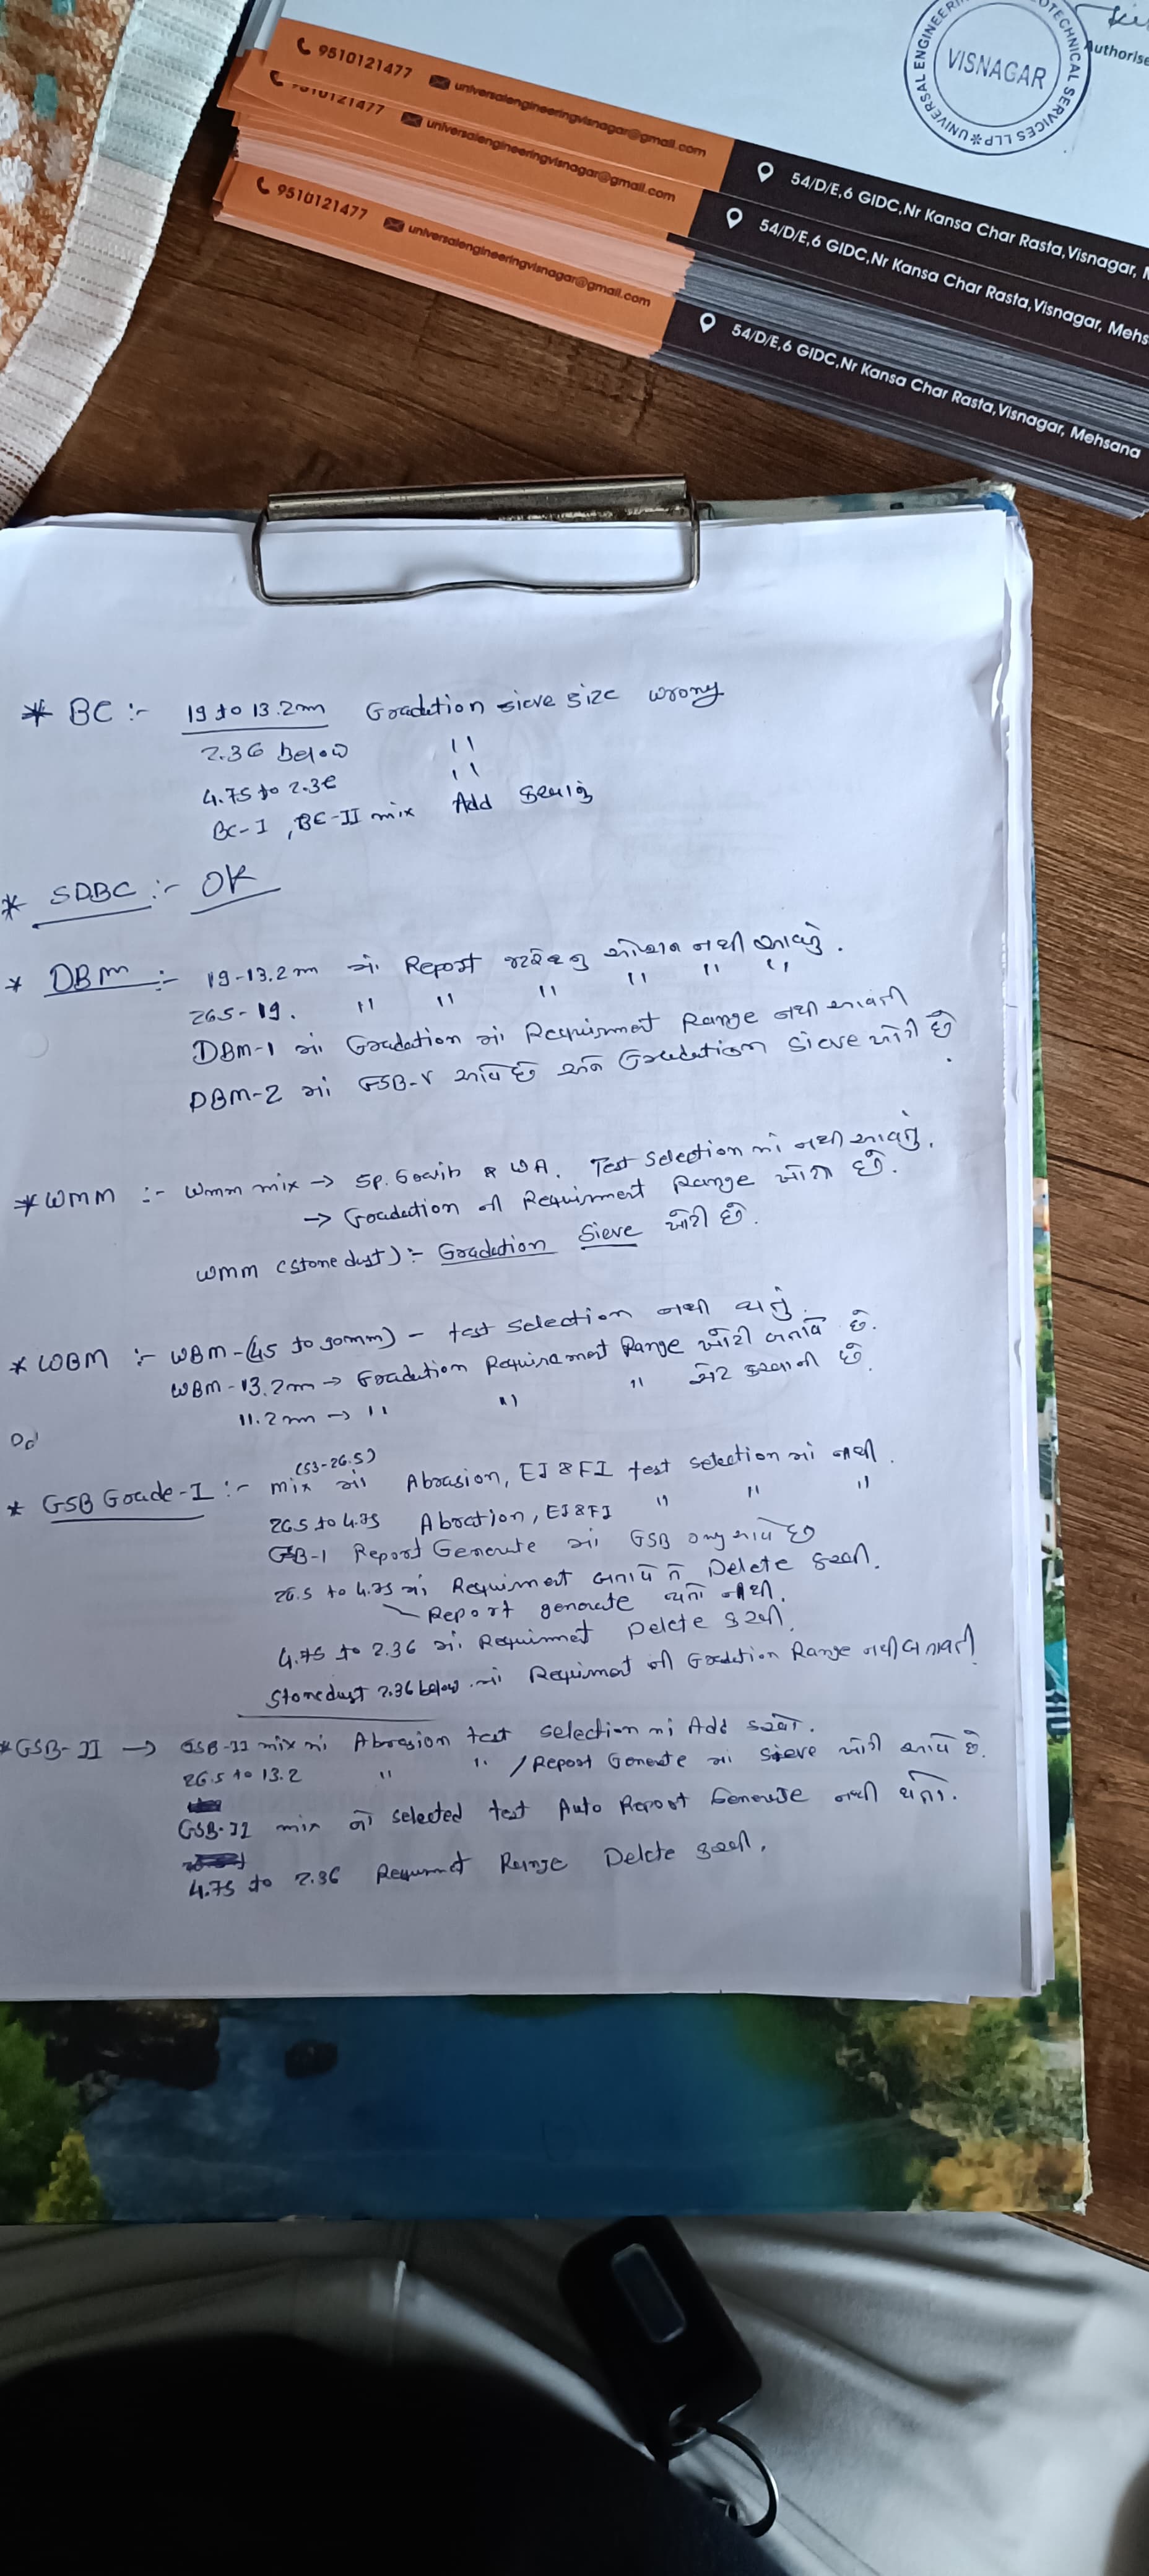 9510121477 universalengineeringvisnagar@gmail.com 54/D/E,6 GIDC,Nr Kansa Char Rasta,Visnagar,
9510121477 universalengineeringvisnagar@gmail.com 54/D/E,6 GIDC,Nr Kansa Char Rasta,Visnagar, Mehs
9510121477 universalengineeringvisnagar@gmail.com 54/D/E,6 GIDC,Nr Kansa Char Rasta,Visnagar, Mehsana
VISNAGAR
Authorise
* BC :- 19 to 13.2m Gradution sieve size wrong
2.36 below 11
4.75 to 2.36 11
BC-I, BC-II mix Add કરવાનું
* SDBC :- OK
* DBM :- 19-13.2m માં Report નથી આવતું.
265-19. 11 11 11 11 11 11
DBM-1 માં Gradation માં Requirment Range નથી આવતી
DBM-2 માં GSB-V આવે છે અને Gradation sieve ખોટી છે
* WMM :- Wmm mix → SP. Gravity & WA. Test Selection માં નથી આવતું.
→ Gradution ની Requirment Range ખોટી છે.
WMM (stone dust) :- Gradution Sieve ખોટી છે.
* WBM :- WBM-(45 to 90mm) - test selection નથી થતું.
WBM-13.2m → Gradution Requirement Range ખોટી બતાવે છે.
11.2mm → 11 11 11 સેટ કરવાની છે.
* GSB Grade-I :- mix (53-26.5) માં Abrasion, EI & FI test selection માં નથી.
26.5 to 4.75 Abration, EI & FI 11 11 11
GSB-1 Report Generate માં GSB આવે છે
26.5 to 4.75 માં Requirment બતાવે તે Delete કરવી.
Report generate થતો નથી.
4.75 to 2.36 માં Requirmet Delete કરવી.
Stonedust 2.36 below માં Requirment ની Gradution Range નથી બતાવતી
* GSB-II → GSB-II mix માં Abrasion test selection માં Add કરવો.
26.5 to 13.2 11 11 / Report Generate માં sieve ખોટી આવે છે.
GSB-II mix નો selected test Auto Report Generate નથી થતો.
4.75 to 2.36 Requrmet Range Delete કરવી.